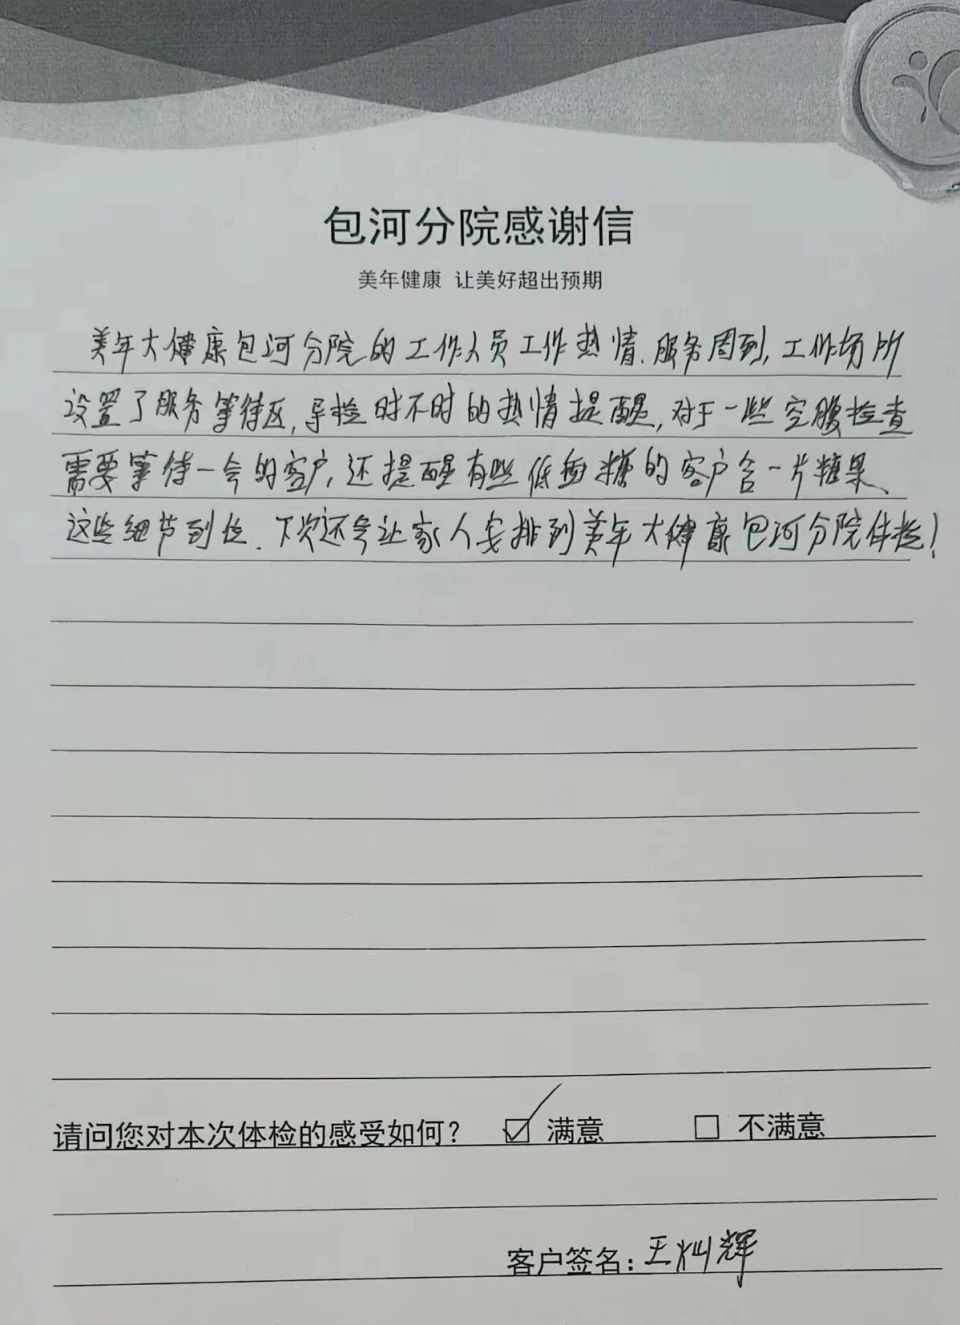 包河分院感谢信
美年健康 让美好超出预期
美年大健康包河分院的工作人员工作热情、服务周到,工作场所
设置了服务等待区,导检时不时的热情提醒,对于一些空腹检查
需要等待一会的客户,还提醒有些低血糖的客户含一片糖果、
这些细节到位、下次还会让家人安排到美年大健康包河分院体检!
请问您对本次体检的感受如何? ☑ 满意 □ 不满意
客户签名:王灿辉